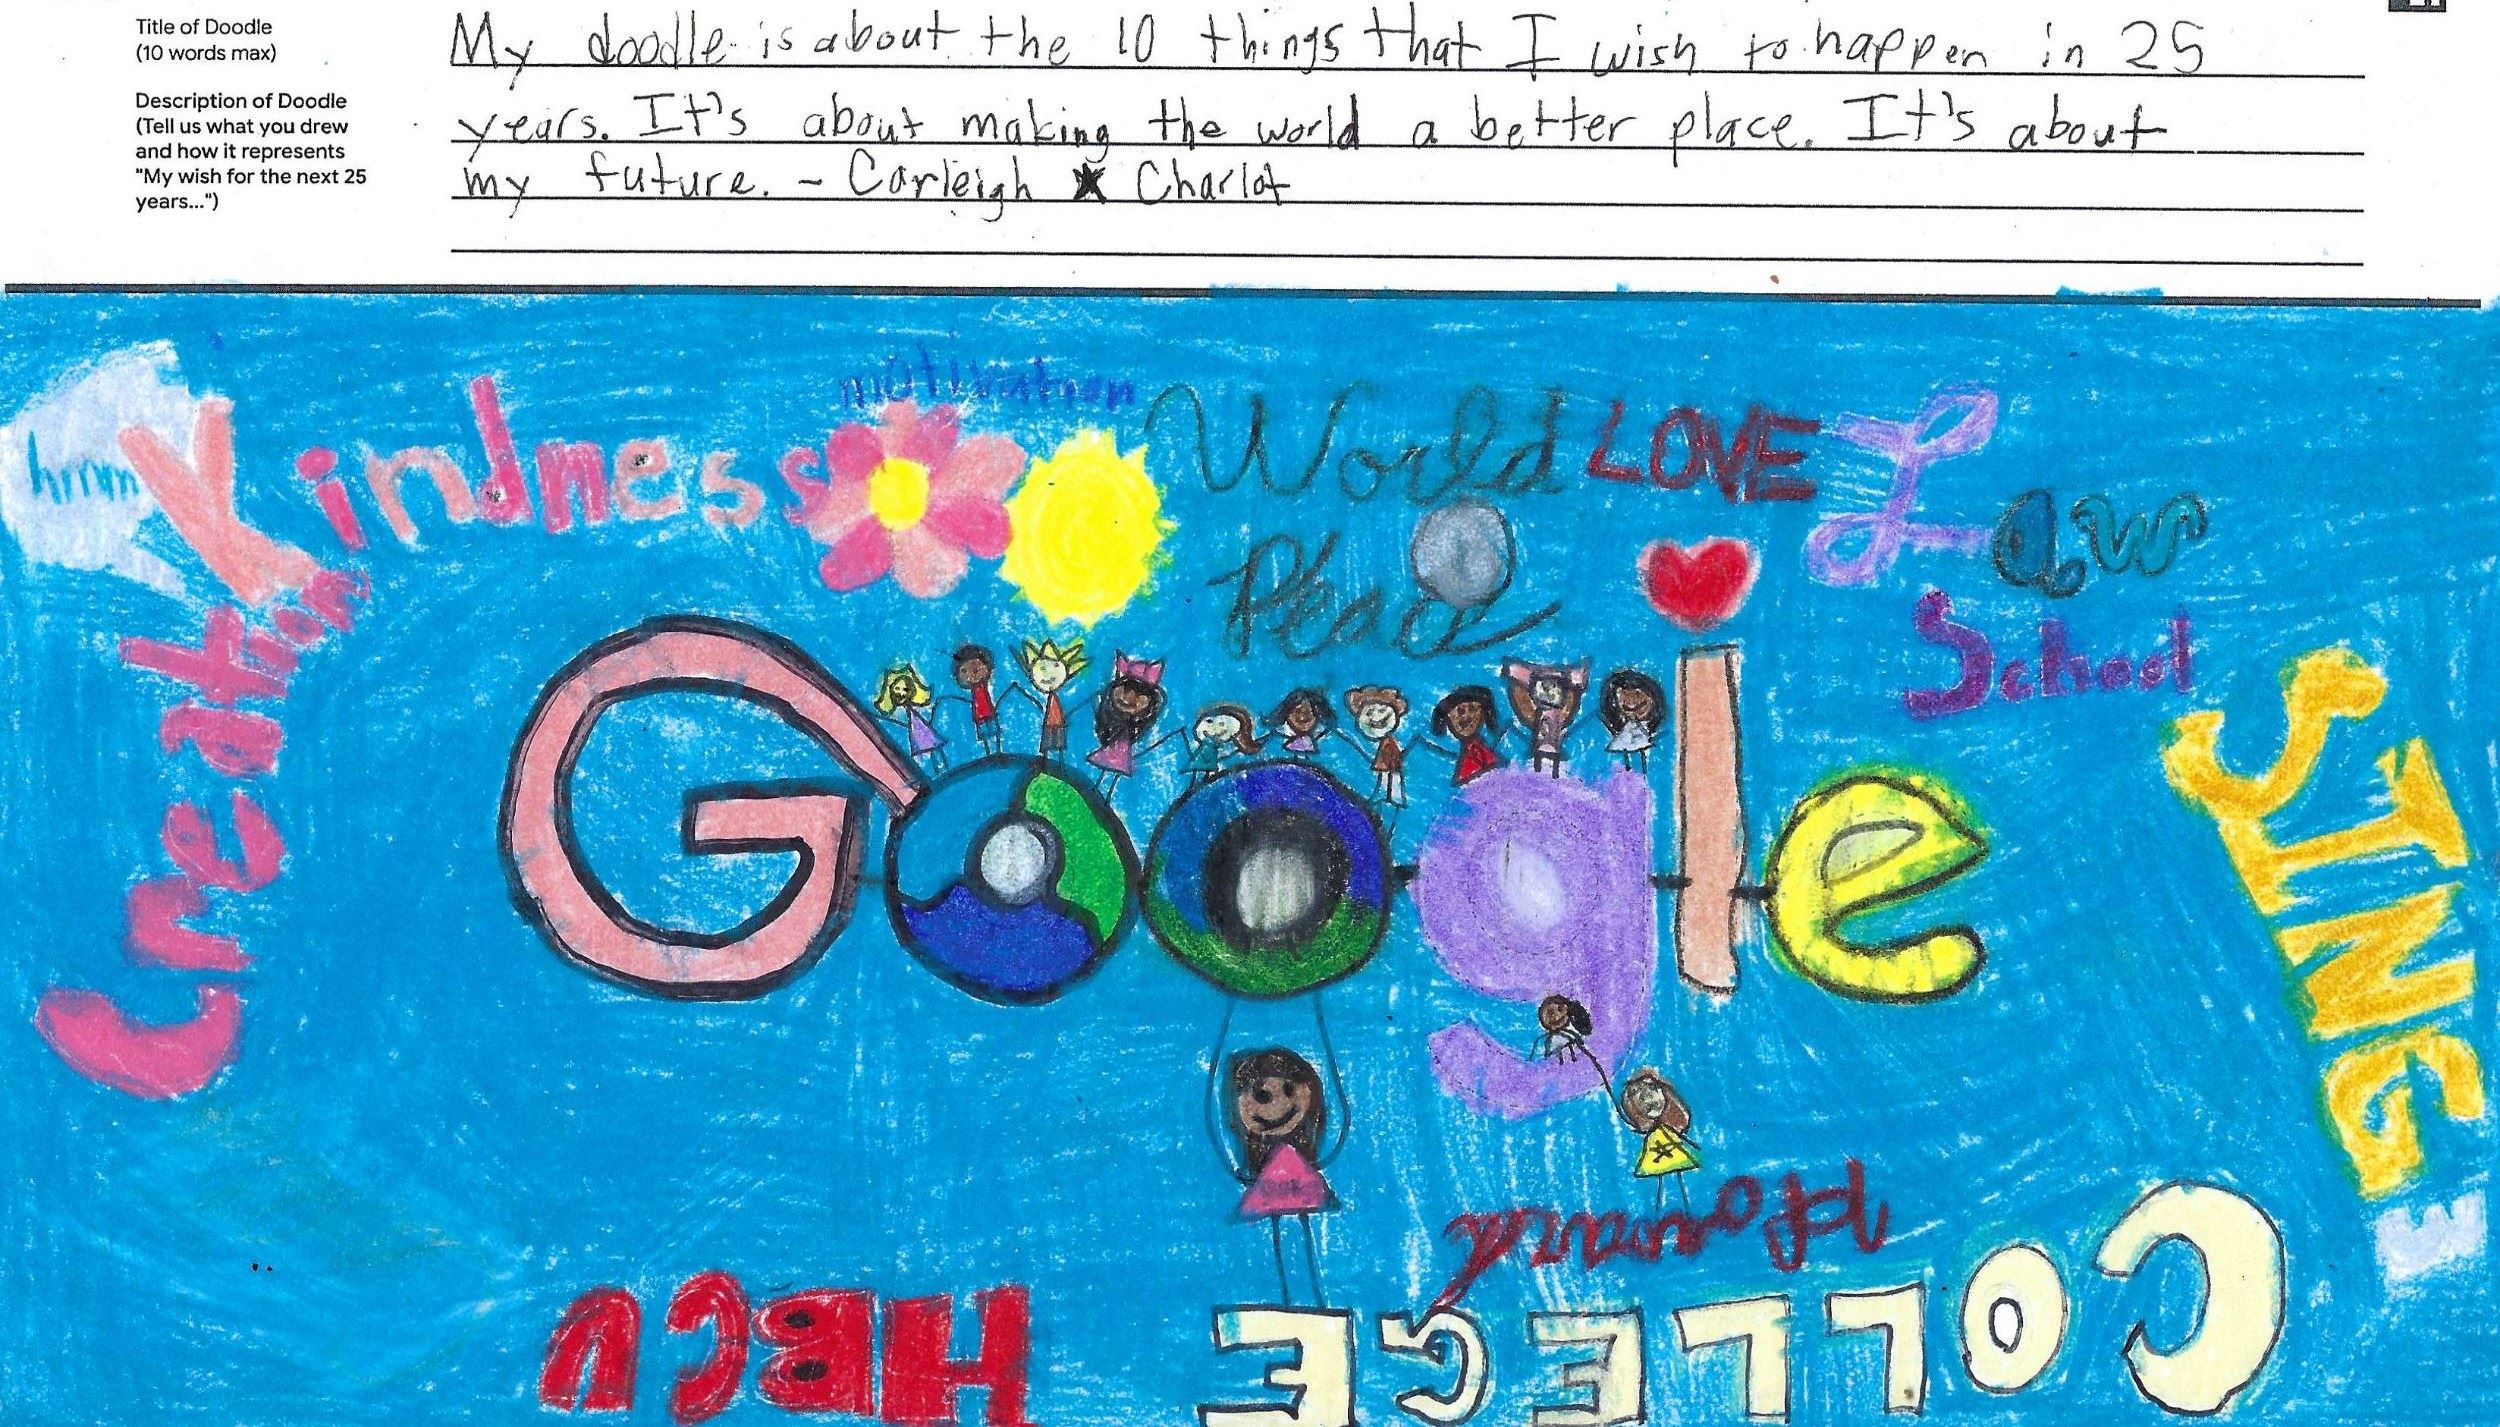 Title of Doodle
(10 words max)
Description of Doodle
(Tell us what you drew
and how it represents
"My wish for the next 25
years...")
My doodle is about the 10 things that I wish to happen in 25
years. It's about making the world a better place. It's about
my future. - Carleigh ★ Charlot
motivation
hmm
Kindness
World
Peace
LOVE
Law
School
Creation
Google
SING
Howard
COLLEGE
HBCU